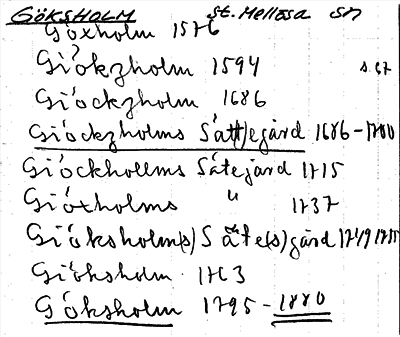 GÖKSHOLM St. Mellösa sn
Göxholm 1576
Giökzholm 1594 s. 67
Giöckzholm 1686
Giöckzholms Sät(t)egård 1686-1700
Giöckhollms Sätegård 1715
Giöxholms " 1737
Giöksholm(s) Säte(s)gård 1749 1755
Giöksholm 1763
Göksholm 1795-1880